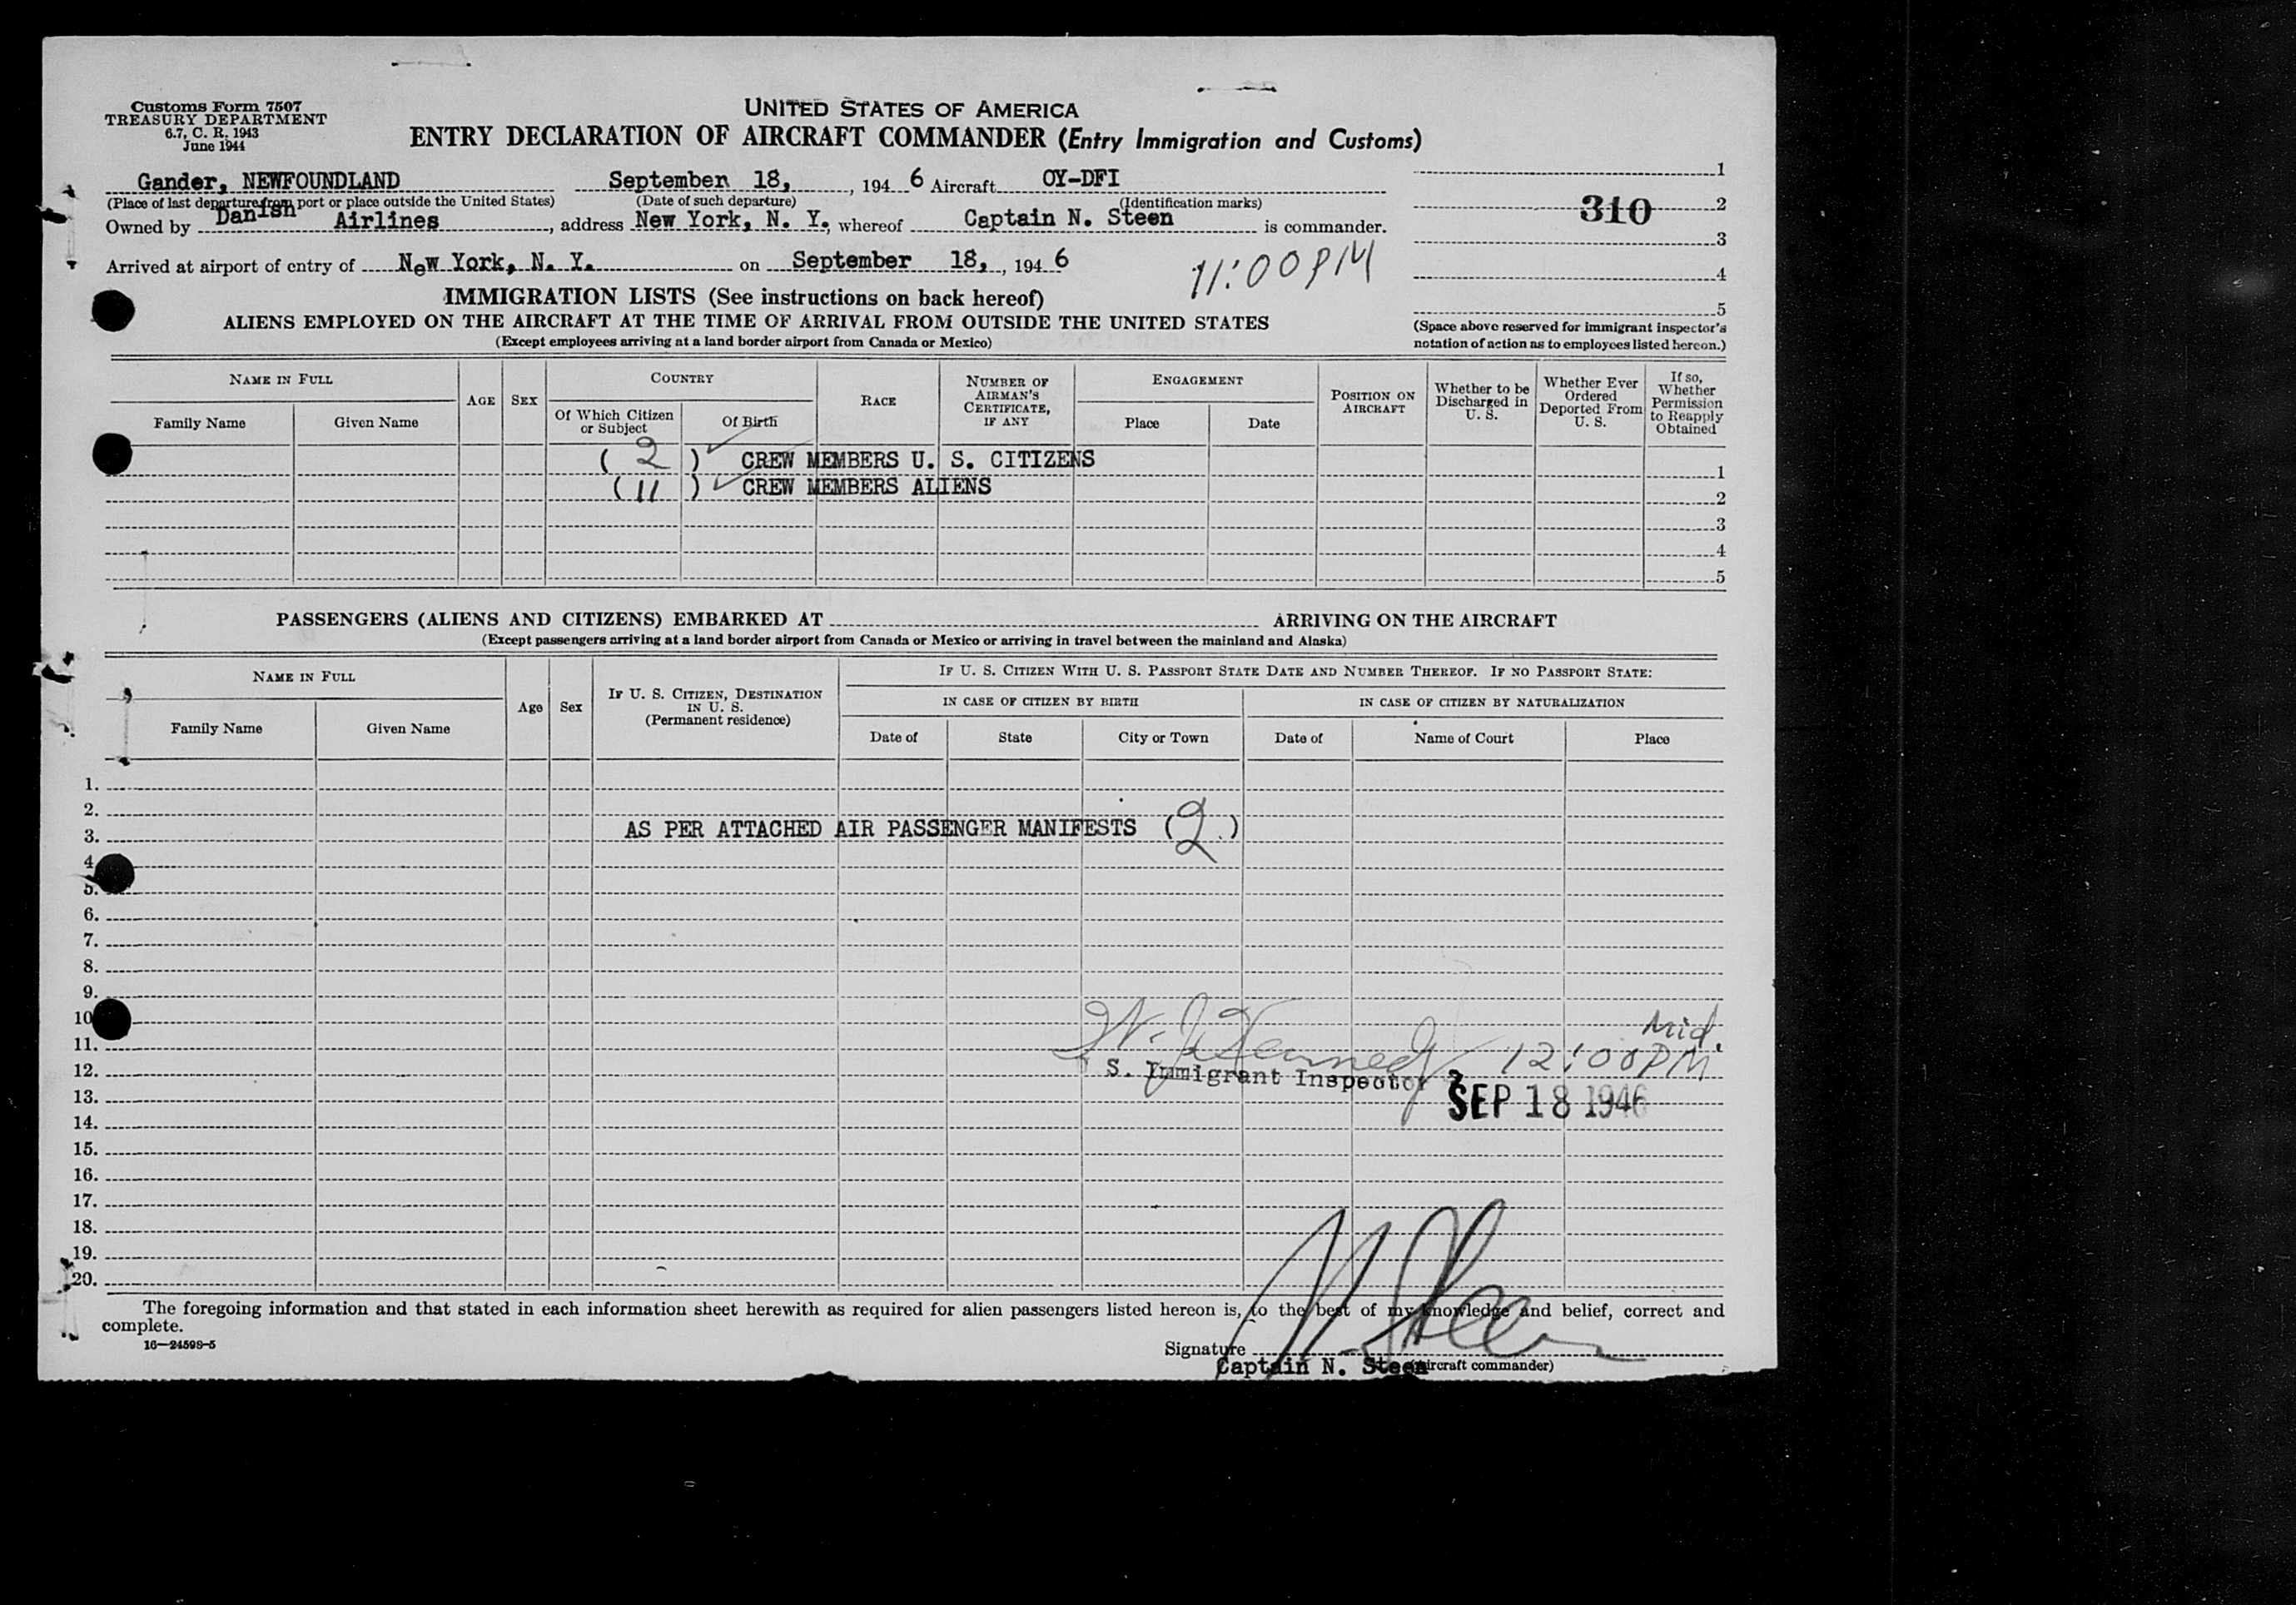 Customs Form 7507
TREASURY DEPARTMENT
6.7, C. R. 1943
June 1944
UNITED STATES OF AMERICA
ENTRY DECLARATION OF AIRCRAFT COMMANDER (Entry Immigration and Customs)
Gander, NEWFOUNDLAND September 18, , 194 6 Aircraft OY-DFI
(Place of last departure from port or place outside the United States) (Date of such departure) (Identification marks)
Owned by Danish Airlines , address New York, N. Y. whereof Captain N. Steen is commander.
Arrived at airport of entry of New York, N. Y. on September 18, , 194 6
11:00 PM
1
310 2
3
4
5
(Space above reserved for immigrant inspector's
notation of action as to employees listed hereon.)
IMMIGRATION LISTS (See instructions on back hereof)
ALIENS EMPLOYED ON THE AIRCRAFT AT THE TIME OF ARRIVAL FROM OUTSIDE THE UNITED STATES
(Except employees arriving at a land border airport from Canada or Mexico)
NAME IN FULL
Family Name Given Name
AGE SEX
COUNTRY
Of Which Citizen or Subject Of Birth
RACE
NUMBER OF AIRMAN'S CERTIFICATE, IF ANY
ENGAGEMENT
Place Date
POSITION ON AIRCRAFT
Whether to be Discharged in U. S.
Whether Ever Ordered Deported From U. S.
If so, Whether Permission to Reapply Obtained
( 2 ) CREW MEMBERS U. S. CITIZENS 1
( 11 ) CREW MEMBERS ALIENS 2
3
4
5
PASSENGERS (ALIENS AND CITIZENS) EMBARKED AT ARRIVING ON THE AIRCRAFT
(Except passengers arriving at a land border airport from Canada or Mexico or arriving in travel between the mainland and Alaska)
NAME IN FULL
Family Name Given Name
Age Sex
IF U. S. CITIZEN, DESTINATION IN U. S.
(Permanent residence)
IF U. S. CITIZEN WITH U. S. PASSPORT STATE DATE AND NUMBER THEREOF. IF NO PASSPORT STATE:
IN CASE OF CITIZEN BY BIRTH IN CASE OF CITIZEN BY NATURALIZATION
Date of State City or Town Date of Name of Court Place
1.
2.
3. AS PER ATTACHED AIR PASSENGER MANIFESTS (2.)
4
5.
6.
7.
8.
9.
10
Mid.
11. W. J. Kennedy 12:00 PM
12. S. Immigrant Inspector
13. SEP 18 1946
14.
15.
16.
17.
18.
19.
20.
The foregoing information and that stated in each information sheet herewith as required for alien passengers listed hereon is, to the best of my knowledge and belief, correct and
complete.
16—24598-5
Signature N. Steen
Captain N. Steen (Aircraft commander)